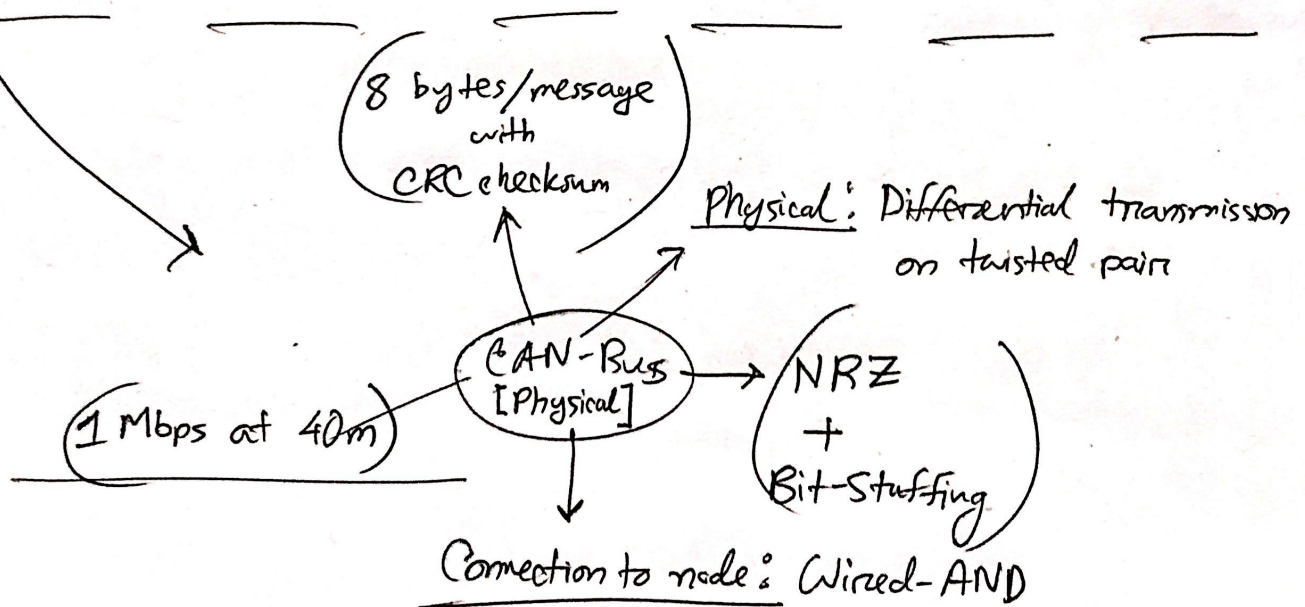 8 bytes/message
with
CRC checksum
Physical: Differential transmisson
on twisted pair
CAN-Bus
[Physical]
1 Mbps at 40m
NRZ
+
Bit-Stuffing
Connection to node: Wired-AND